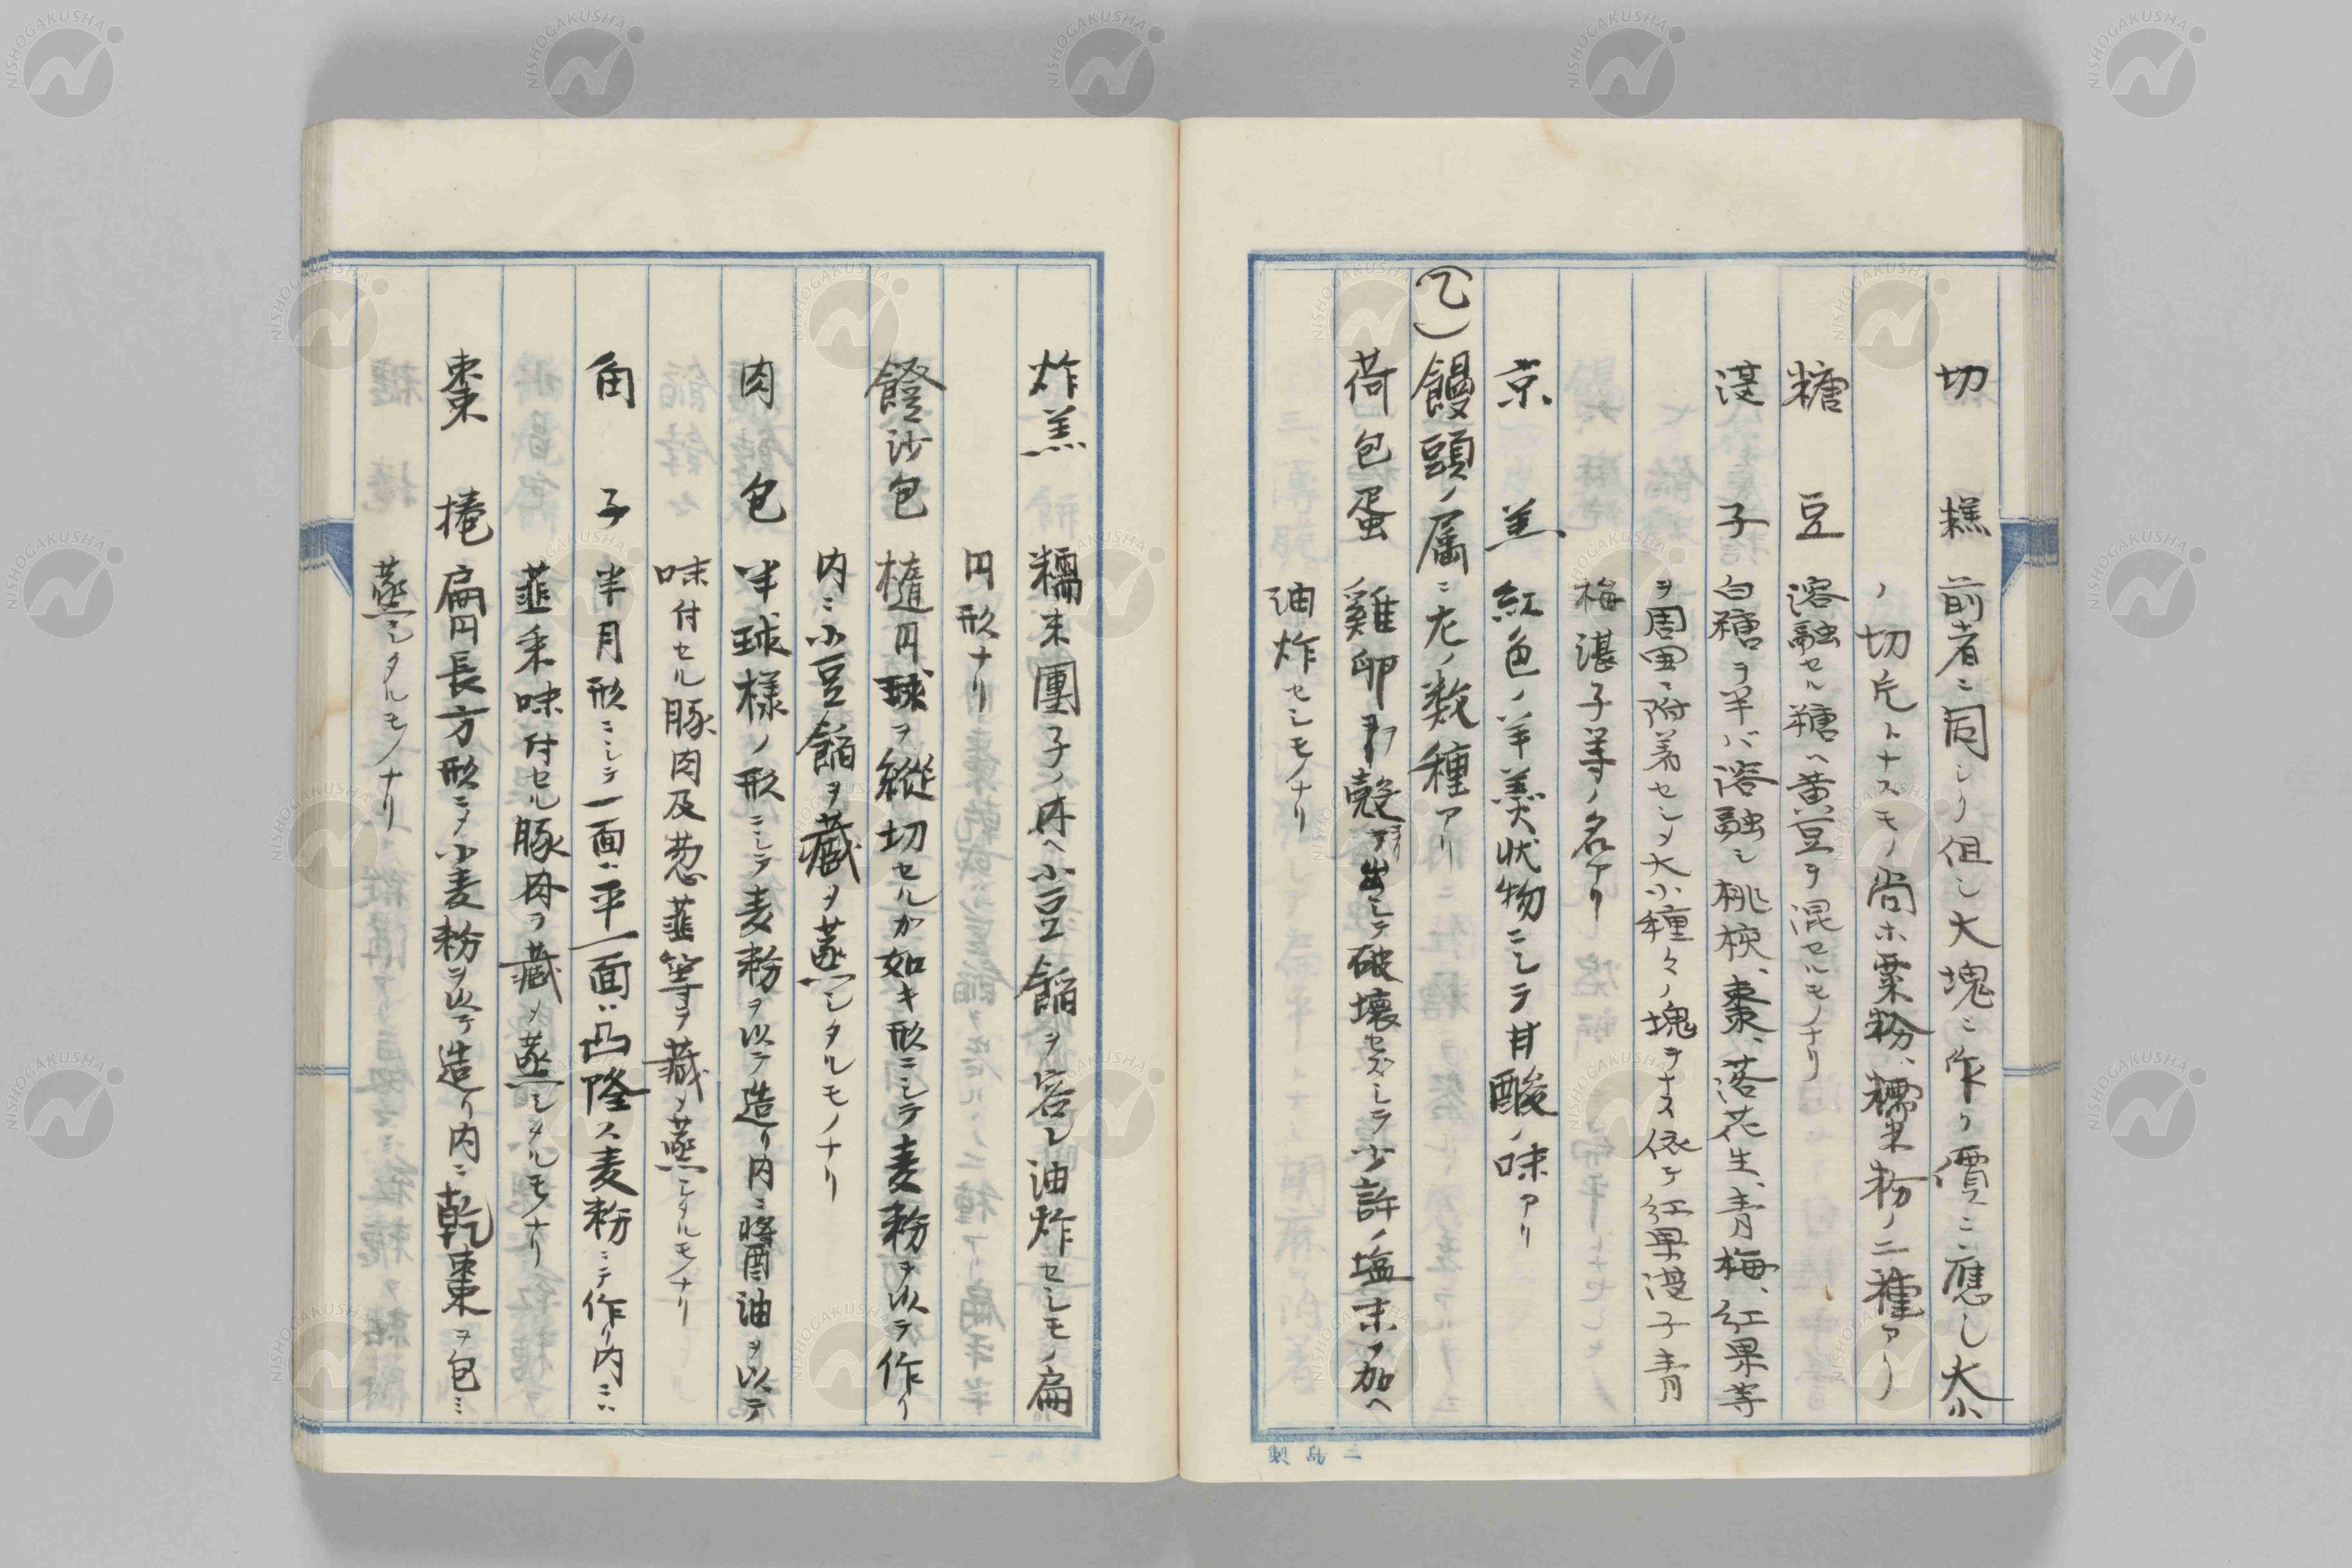 切糕 前者ニ同シク但シ大塊ニ作リ價ニ應シ大小
ノ切片トナスモノ尚ホ粟粉、糯米粉ノ二種アリ
糖豆 溶融セル糖ヘ黄豆ヲ混セルモノナリ
子 白糖ヲ半バ溶融シ桃 、棗、落花生、青梅、紅果等
ヲ周囲ニ附着セシメ大小種々ノ塊ヲナス依テ紅果 子青
梅湛子等ノ名アリ
京羔 紅色ノ羊羹状物ニシテ甘酸ノ味アリ
(乙)饅頭ノ属ニ左ノ数種アリ
荷包蛋 雞卵ヲ殻ヨリ出シテ破壊セズシテ少許ノ塩末ヲ加ヘ
油炸セシモノナリ
炸羔 糯米團子ノ内ヘ小豆餡ヲ容レ油炸セシモノ扁
円形ナリ
沙包 楕円球ヲ縦切セルガ如キ形ニシテ麦粉ヲ以テ作リ
内ニ小豆餡ヲ藏メ蒸シタルモノナリ
肉包 半球様ノ形ニシテ麦粉ヲ以テ造リ内ニ醤油ヲ以テ
味付セル豚肉及葱韮等ヲ藏メ蒸シタルモノナリ
角子 半月形ニシテ一面ハ平一面ハ凸隆ス麦粉ニテ作リ内ニハ
韮 味付セル豚肉ヲ藏メ蒸シタルモノナリ
棗捲 扁円長方形ニメ小麦粉ヲ以テ造リ内ニ乾棗ヲ包ミ
蒸シタルモノナリ
二 製
NISHOGAKUSHA